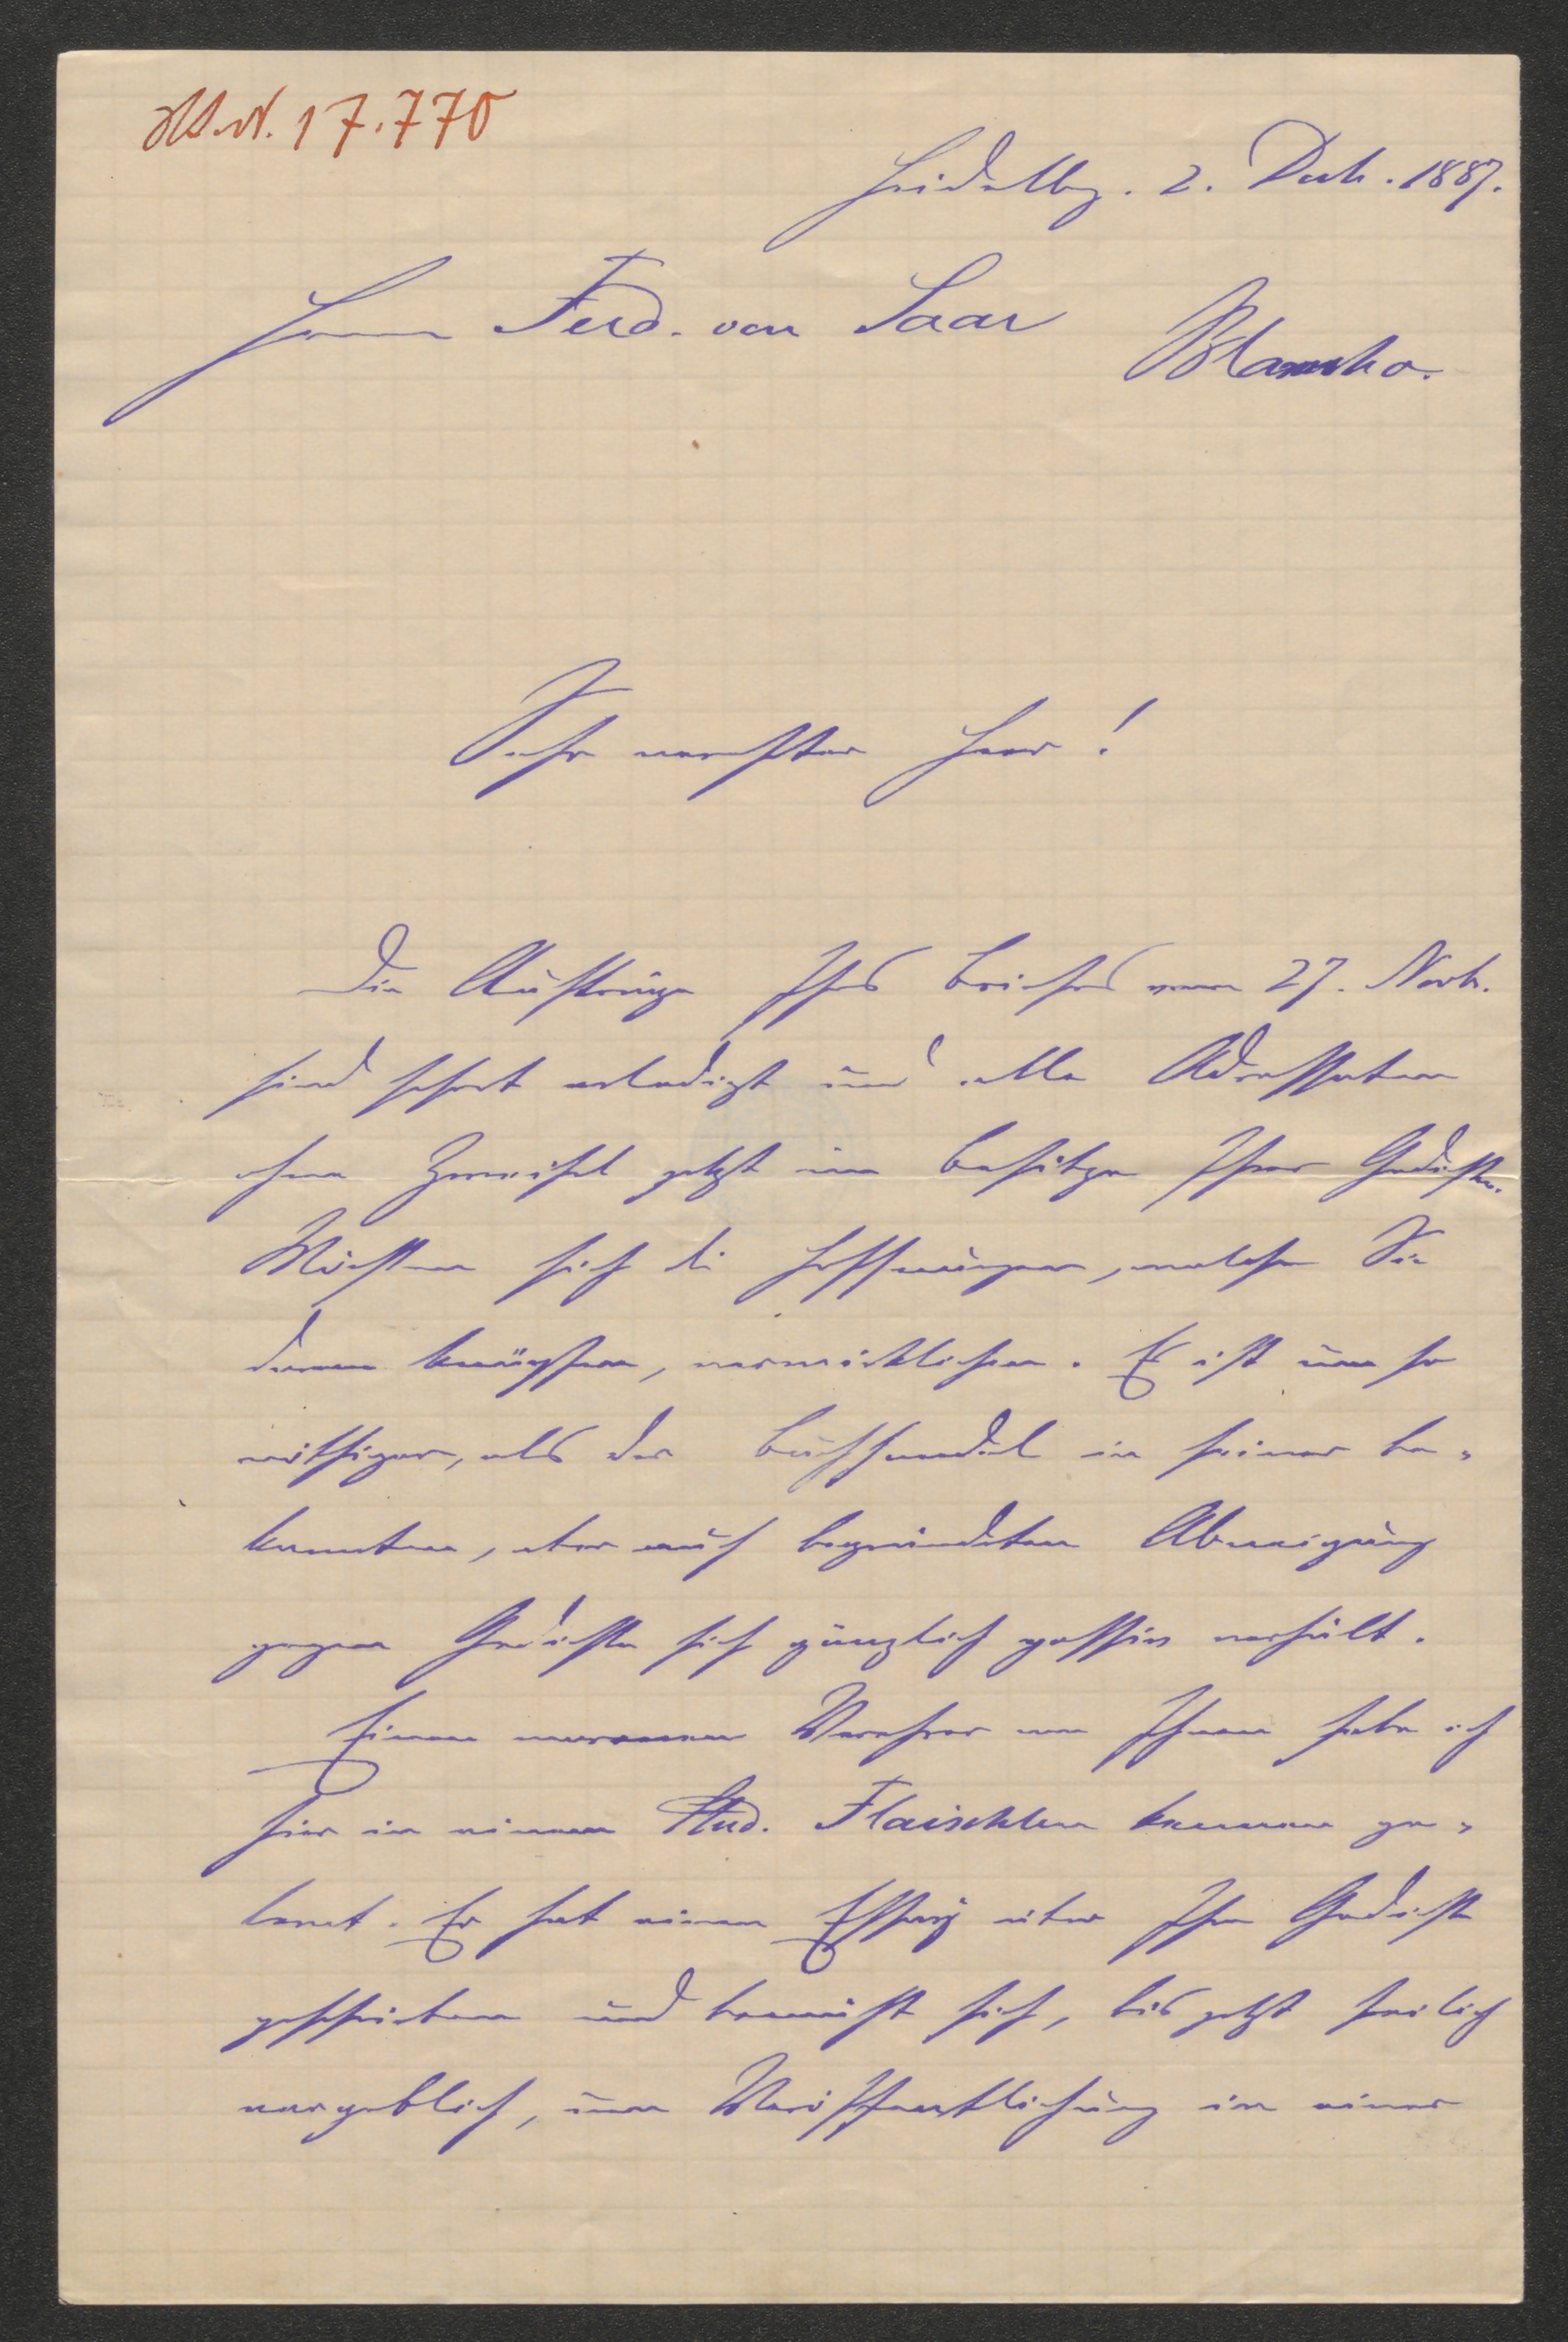 H.I.N. 17.770
Heidelbg. 2. Decb. 1887.
Herrn Ferd. von Saar
Blansko.
Sehr verehrter Herr!
Die Aufträge Ihres Briefes vom 27. Novb.
sind sofort erledigt und alle Adressaten
ohne Zweifel jetzt im Besitze Ihrer Gedichte.
Möchten sich die Hoffnungen, welche Sie
daran knüpfen, verwirklichen. Es ist um so
nöthiger, als der Buchhandel in seiner be-
kannten, aber auch begründeten Abneigung
gegen Gedichte sich gänzlich passiv verhält.
Einen warmen Verehrer von Ihnen habe ich
hier in einem Stud. Flaischlen kennen ge-
lernt. Er hat einen Essay über Ihre Gedichte
geschrieben und bemüht sich, bis jetzt freilich
vergeblich, um Veröffentlichung in einer